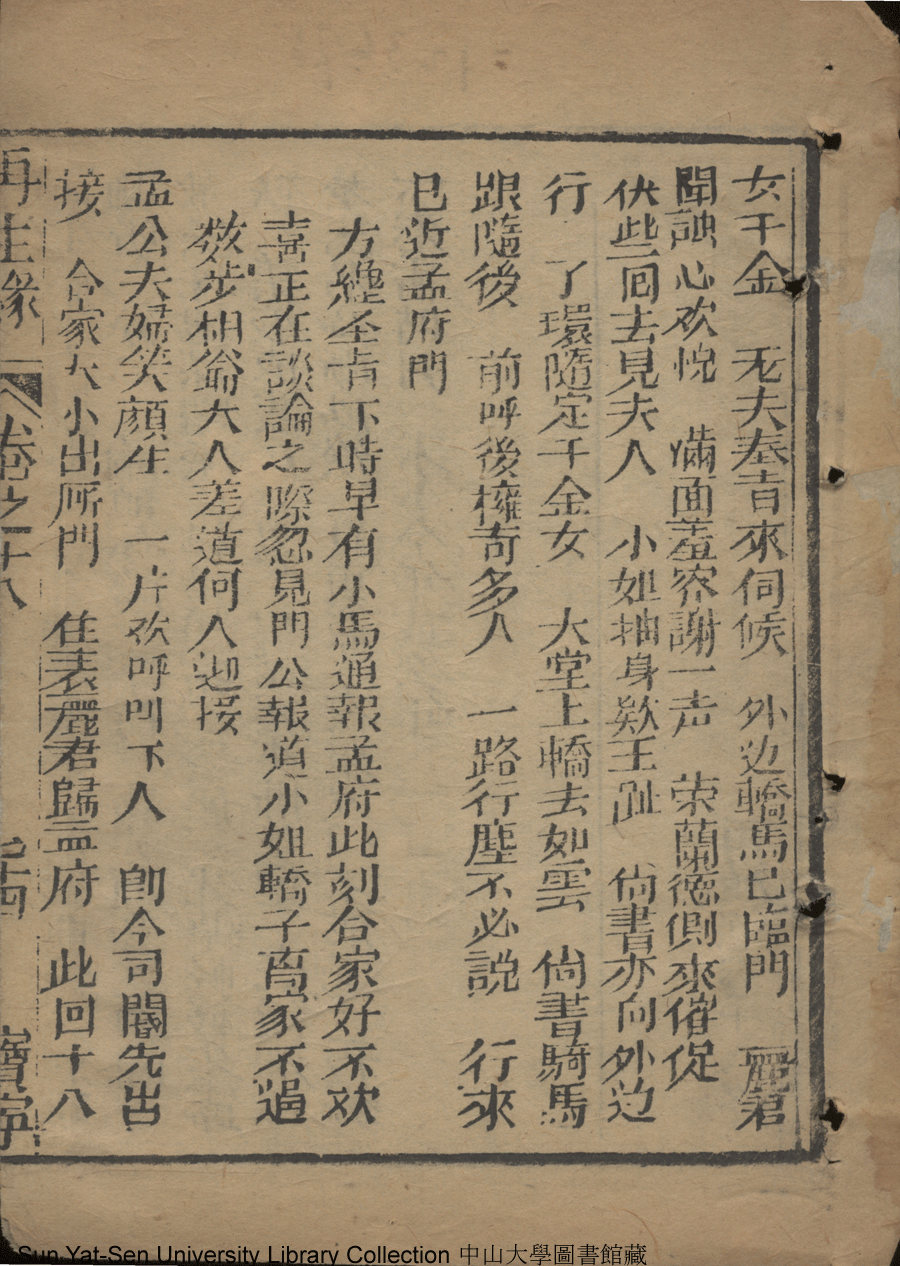 女千金 无夫奉旨來伺候 外边轎馬已臨門 麗君
聞說心欢悅 滿面羞容謝一声 荣蘭德側來催促
伏些回去見夫人 小姐抽身欵玉趾 尙書亦向外边
行 了環隨定千金女 大堂上轎去如雲 尙書騎馬
跟隨後 前呼後擁奇多人 一路行塵不必說 行來
已近孟府門
方纔圣旨下時早有小馬通報孟府此刻合家好不欢
喜正在談論之際忽見門公報道小姐轎子离家不過
数步相爺大人差道何人迎接
孟公夫婦笑顏生 一片欢呼叫下人 卽令司閽先出
接 合家大小出厛門 住表麗君歸孟府 此回十八
再生緣 卷之十八 寶寧
Sun Yat-Sen University Library Collection 中山大學圖書館藏